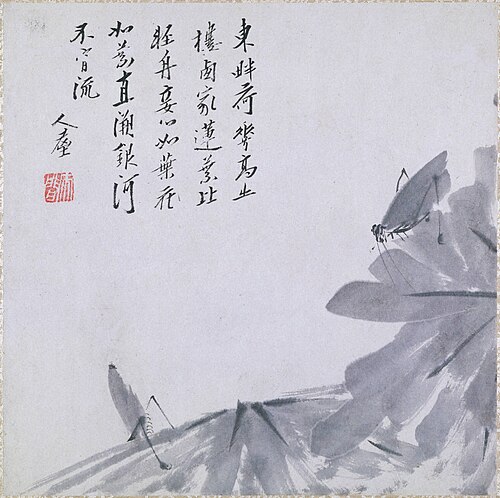 東畔荷華高出
西家蓮葉比
輕舟妾心如葉花
如葉直溯銀河
不肯流
人屋